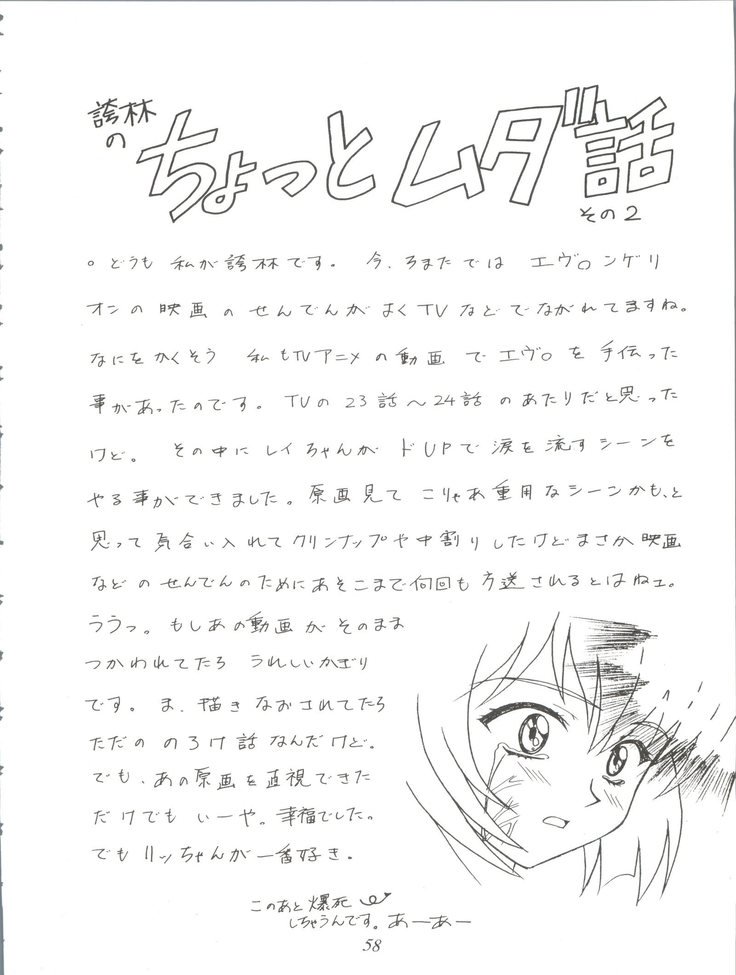 誇林の
ちょっとムダ話
その2
○どうも 私が誇林です。 今、ちまたでは エヴ○ンゲリ
オンの映画のせんでんがよくTVなどでながれてますね。
なにをかくそう 私もTVアニメの動画でエヴ○を手伝った
事があったのです。TVの23話〜24話のあたりだと思った
けど。 その中にレイちゃんがドUPで涙を流すシーンを
やる事ができました。原画見てこりゃあ重用なシーンかも、と
思って気合い入れてクリンナップや中割りしたけどまさか映画
などのせんでんのためにあそこまで何回も方送されるとはねェ。
ううっ。もしあの動画がそのまま
つかわれてたら うれしいかぎり
です。ま、描きなおされてたら
ただの のろけ話なんだけど。
でも、あの原画を直視できた
だけでも いーや。幸福でした。
でもリッちゃんが一番好き。
このあと爆死
しちゃうんです。あーあー
58